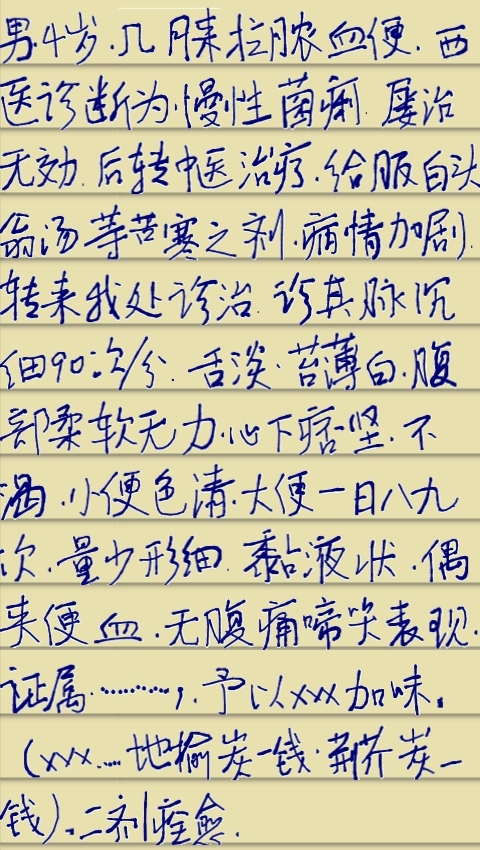 男.4岁.几月来拉脓血便.西
医诊断为慢性菌痢.屡治
无效.后转中医治疗.给服白头
翁汤等苦寒之剂.病情加剧.
转来我处诊治.诊其脉沉
细90次/分.舌淡.苔薄白.腹
部柔软无力.心下痞坚.不
渴.小便色清.大便一日八九
次.量少形细.黏液状.偶
夹便血.无腹痛啼哭表现.
证属…………,.予以xxx加味。
(xxx……地榆炭一钱.荆芥炭一
钱).二剂痊愈.